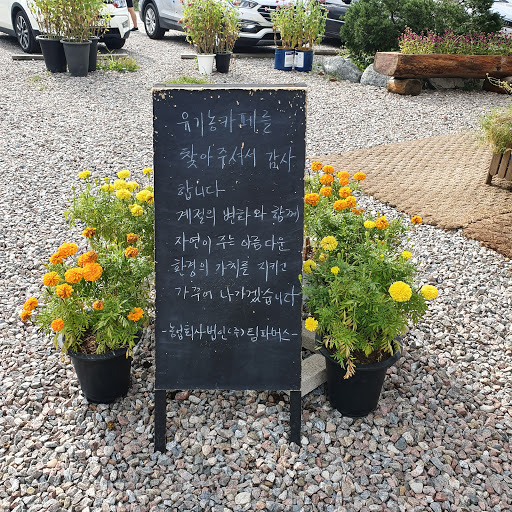 유기농카페를
찾아주셔서 감사
합니다
계절의 변화와 함께
자연이 주는 아름다운
환경의 가치를 지키고
가꾸어 나가겠습니다
-농업회사법인(주)팀파머스-